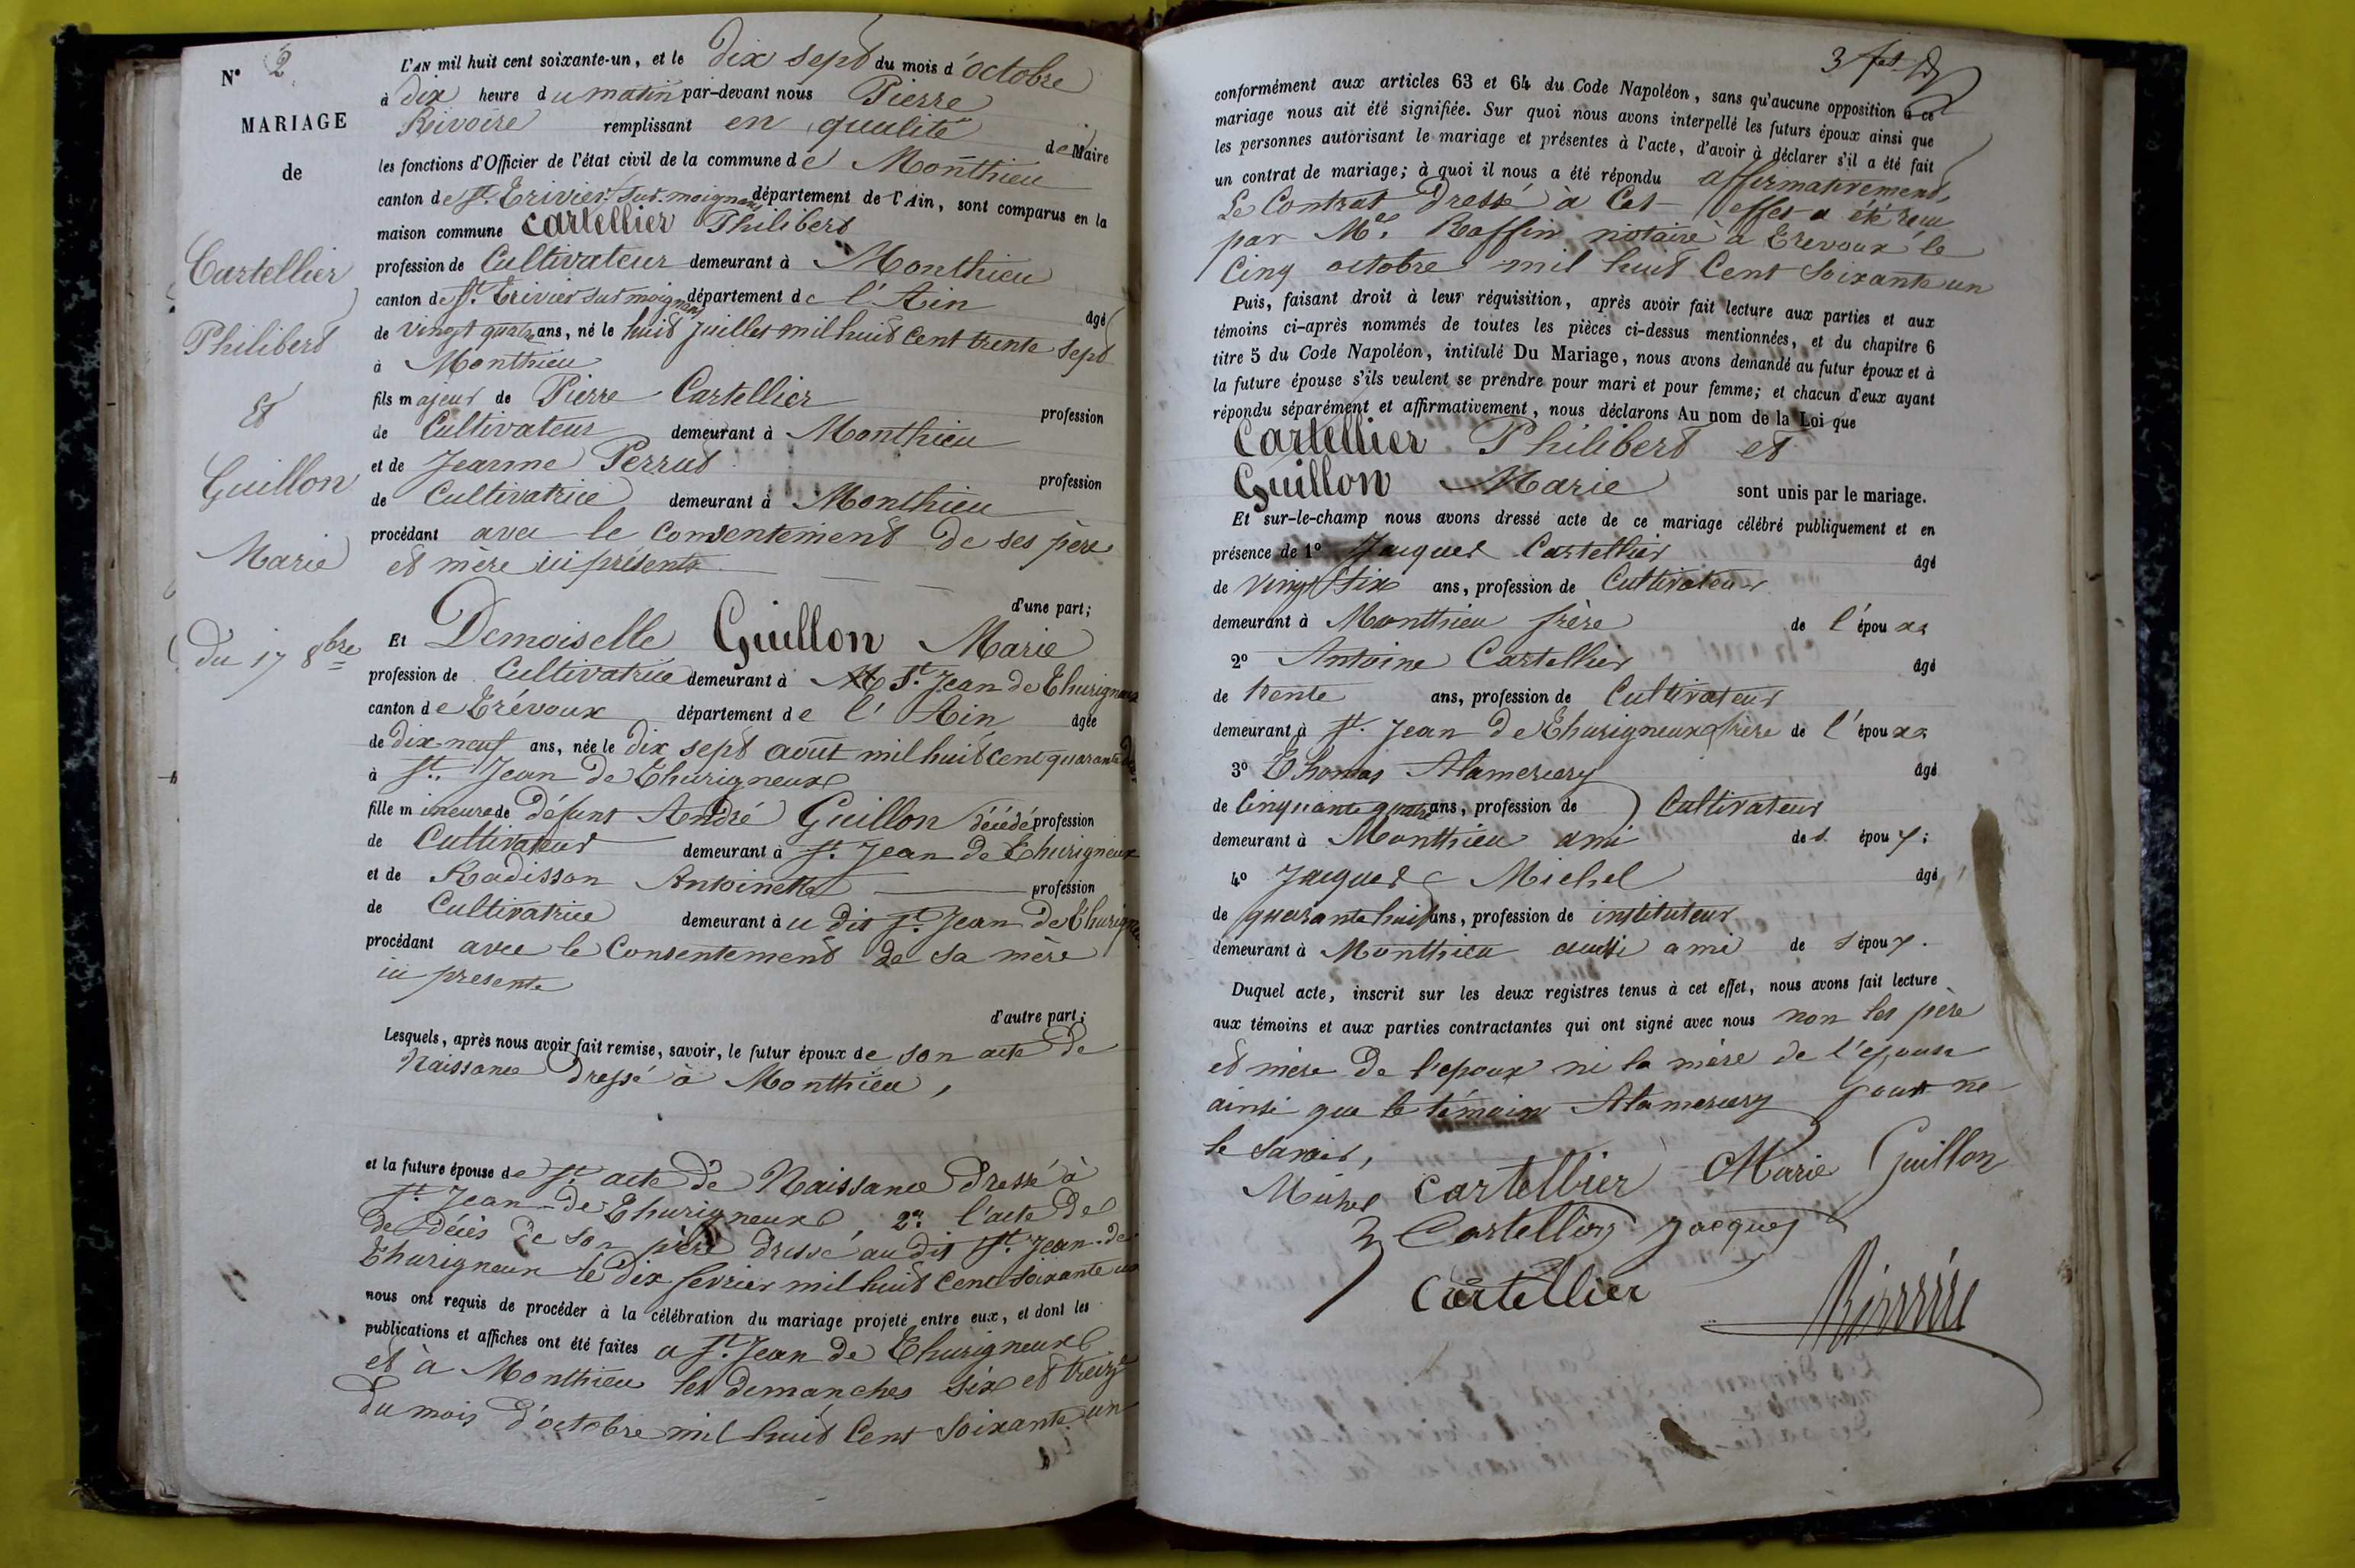 N° 2
MARIAGE
de
Cartellier
Philibert
et
Guillon
Marie
du 17 8bre
L'AN mil huit cent soixante-un, et le dix sept du mois d'octobre
à dix heure du matin par-devant nous Pierre
Rivoire remplissant en qualité de Maire
les fonctions d'Officier de l'état civil de la commune de Monthieu
canton de St. Trivier sur moignans département de l'Ain, sont comparus en la
maison commune Cartellier Philibert
profession de Cultivateur demeurant à Monthieu
canton de St. Trivier sur moignans département de l'Ain âgé
de vingt quatre ans, né le huit juillet mil huit cent trente sept
à Monthieu
fils majeur de Pierre Cartellier profession
de Cultivateur demeurant à Monthieu
et de Jeanne Perrut profession
de Cultivatrice demeurant à Monthieu
procédant avec le consentement de ses père
et mère ici présents
d'une part;
Et Demoiselle Guillon Marie
profession de Cultivatrice demeurant à St. Jean de Thurigneux
canton de Trévoux département de l'Ain âgée
de dix neuf ans, née le dix sept août mil huit cent quarante deux
à St. Jean de Thurigneux
fille mineure de défunt André Guillon décédé profession
de Cultivateur demeurant à St. Jean de Thurigneux
et de Radisson Antoinette profession
de Cultivatrice demeurant à u dit St. Jean de Thurigneux
procédant avec le Consentement de sa mère
ici presente
d'autre part;
Lesquels, après nous avoir fait remise, savoir, le futur époux de son acte de
Naissance dressé à Monthieu,
et la future épouse de st acte de Naissance dressé à
St. Jean de Thurigneux, 2° l'acte de
de décès de son père dressé au dit St. Jean de
Thurigneux le dix fevrier mil huit cent soixante un
nous ont requis de procéder à la célébration du mariage projeté entre eux, et dont les
publications et affiches ont été faites a St. Jean de Thurigneux
et à Monthieu les demanches six et treize
du mois d'octobre mil huit Cent soixante un
conformément aux articles 63 et 64 du Code Napoléon, sans qu'aucune opposition à ce
mariage nous ait été signifiée. Sur quoi nous avons interpellé les futurs époux ainsi que
les personnes autorisant le mariage et présentes à l'acte, d'avoir à déclarer s'il a été fait
un contrat de mariage; à quoi il nous a été répondu affirmativement,
Le Contrat dressé à Cet effet a été reçu
par Me. Raffin notaire à Trevoux le
Cinq octobre mil huit Cent soixante un
Puis, faisant droit à leur réquisition, après avoir fait lecture aux parties et aux
témoins ci-après nommés de toutes les pièces ci-dessus mentionnées, et du chapitre 6
titre 5 du Code Napoléon, intitulé Du Mariage, nous avons demandé au futur époux et à
la future épouse s'ils veulent se prendre pour mari et pour femme; et chacun d'eux ayant
répondu séparément et affirmativement, nous déclarons Au nom de la Loi que
Cartellier Philibert et
Guillon Marie sont unis par le mariage.
Et sur-le-champ nous avons dressé acte de ce mariage célébré publiquement et en
présence de 1° Jacques Cartellier âgé
de vingt six ans, profession de Cultivateur
demeurant à Monthieu frère de l'époux;
2° Antoine Cartellier âgé
de trente ans, profession de Cultivateur
demeurant à St. Jean de Thurigneux frère de l'époux;
3° Thomas Alamercery âgé
de Cinquante quatre ans, profession de Cultivateur
demeurant à Monthieu ami des époux;
4° Jacques Michel âgé
de quarante huit ans, profession de instituteur
demeurant à Monthieu aussi ami des époux.
Duquel acte, inscrit sur les deux registres tenus à cet effet, nous avons fait lecture
aux témoins et aux parties contractantes qui ont signé avec nous non les père
et mère de l'epoux ni la mère de l'epouse
ainsi que le témoin Alamercery pour ne
le savoir,
Michel Cartellier Marie Guillon
Cartellier Jacques
Cartellier
Rivoire